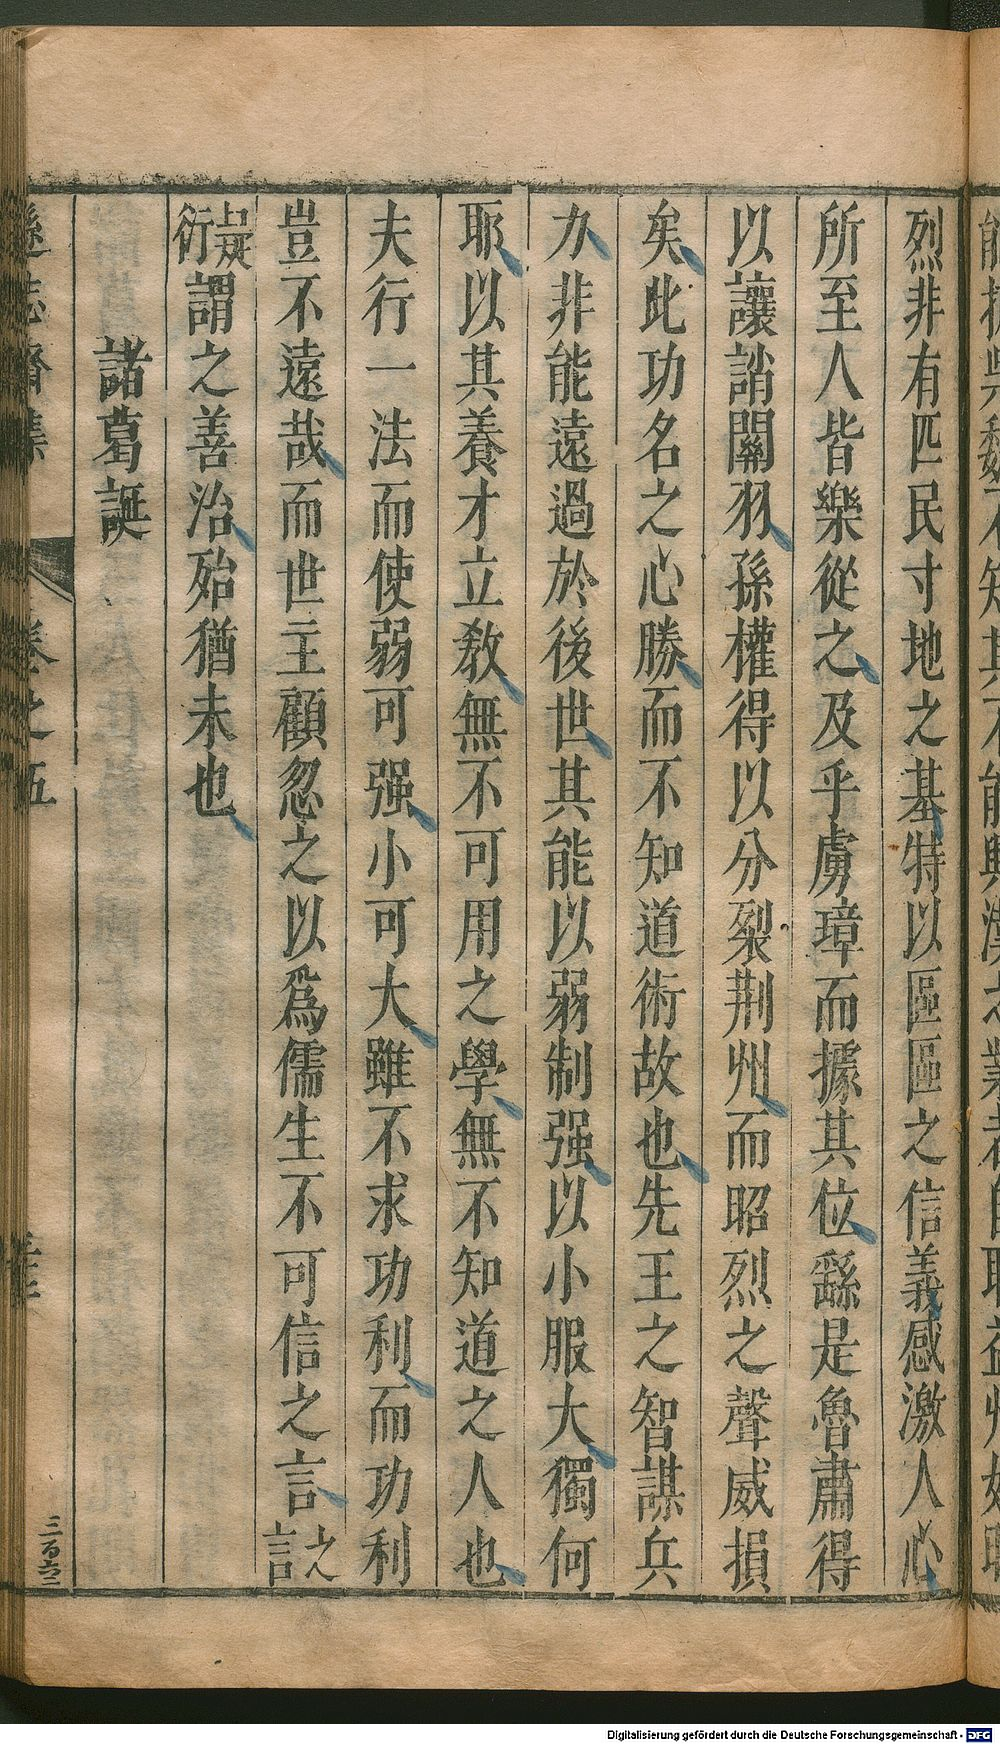 烈非有匹民寸地之基特以區區之信義感激人心
所至人皆樂從之及乎虜璋而據其位繇是魯肅得
以讓誚關羽孫權得以分裂荆州而昭烈之聲威損
矣此功名之心勝而不知道術故也先王之智謀兵
力非能遠過於後世其能以弱制强以小服大獨何
耶以其養才立教無不可用之學無不知道之人也
夫行一法而使弱可强小可大雖不求功利而功利
豈不遠哉而世主顧忽之以爲儒生不可信之言之言
上疑衍謂之善治殆猶未也
諸葛誕
遜志齋集 卷之五
三百六二
Digitalisierung gefördert durch die Deutsche Forschungsgemeinschaft - DFG